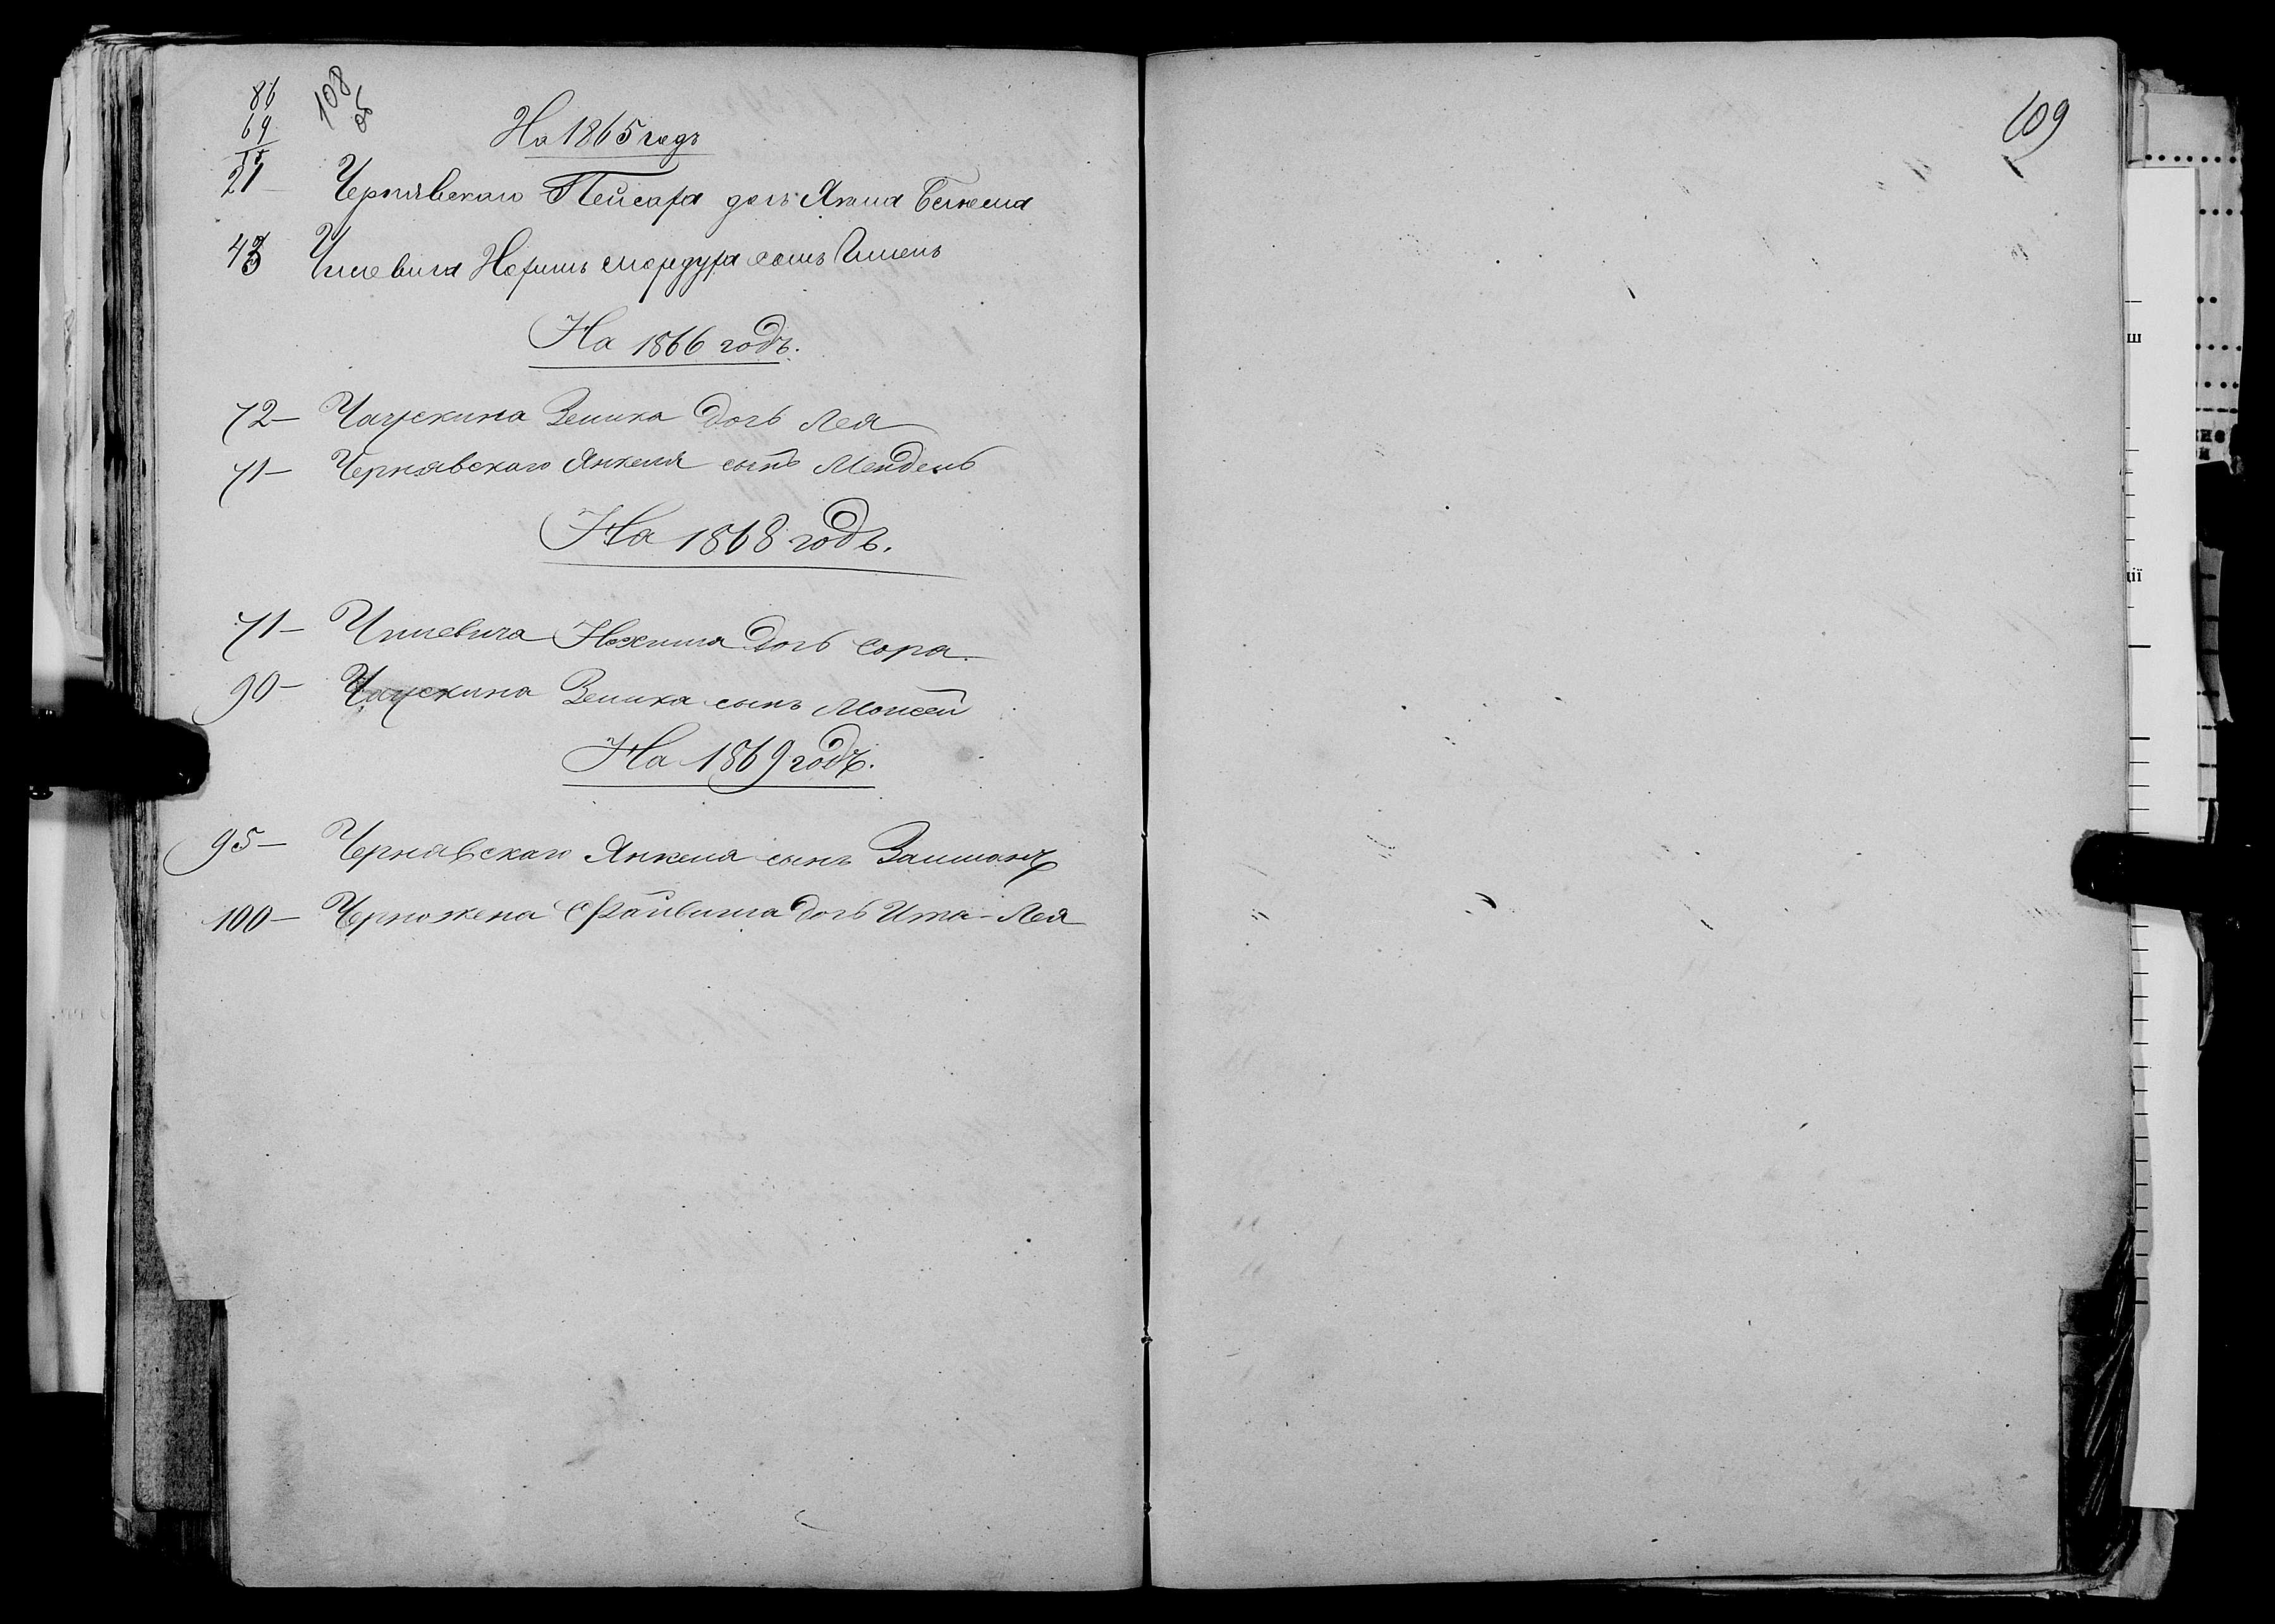 86
69
108
об
На 1865 годъ
21 Чернявскаго Пейсаха дочь Бейла
43 Чилевича Нохимъ сынъ
На 1866 годъ.
72 — Чаускина Зелика дочь Лея
71 — Чернявскаго Янкеля сынъ Мендель
На 1868 годъ.
71 — Чилевича Нохима дочь Сора.
90 — Чаускина Зелика сынъ Моисей
На 1869 годъ.
95 — Чернявскаго Янкеля сынъ Залманъ
100 — Черножена Файвиша дочь Ита-Лея
109